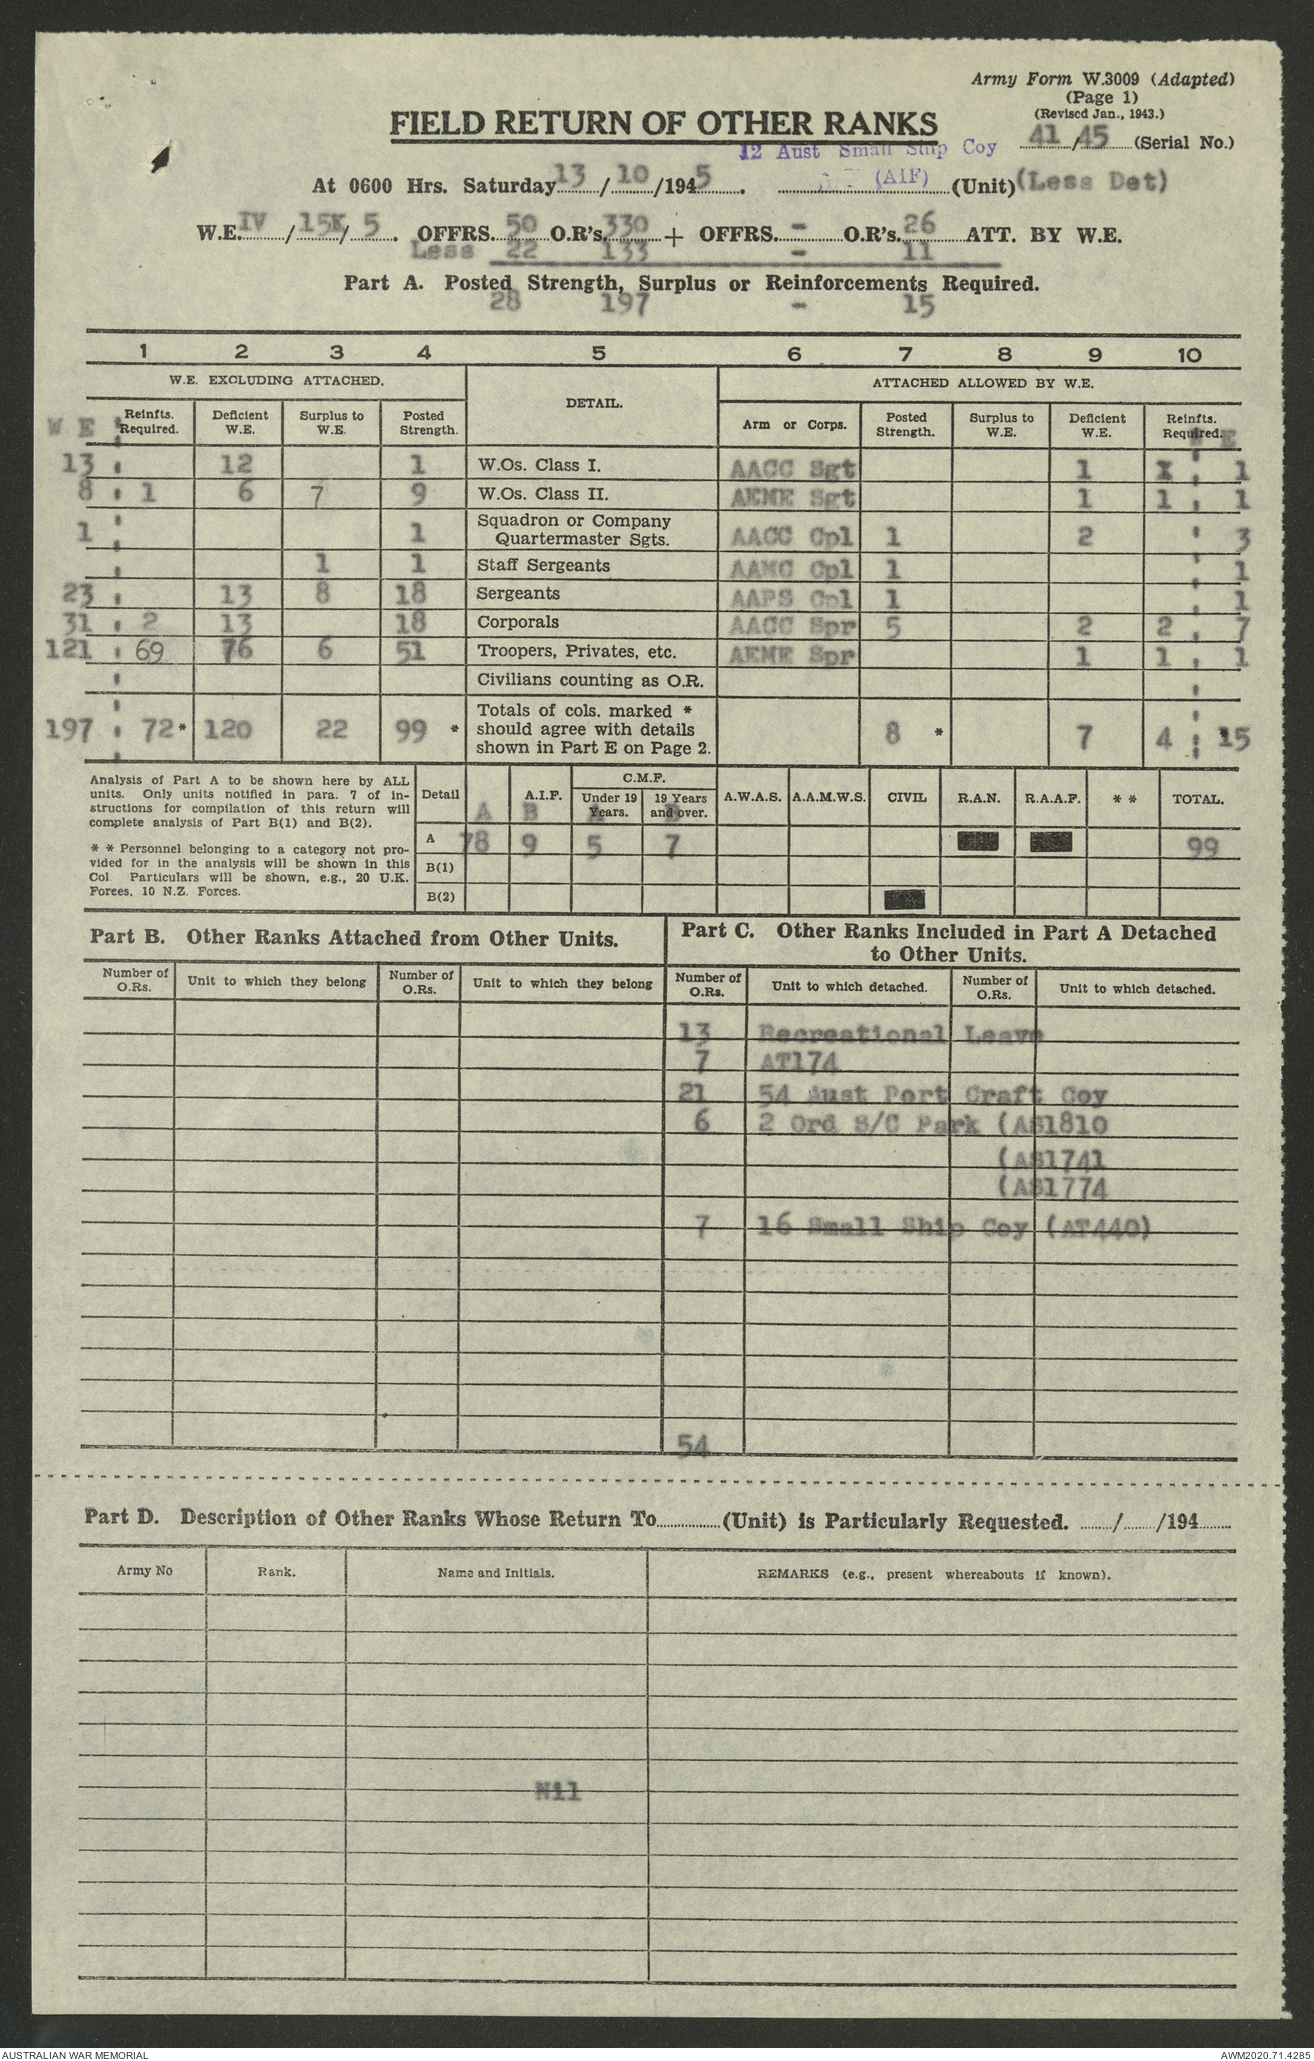 Army Form W.3009 (Adapted)
(Page 1)
(Revised Jan., 1943.)
FIELD RETURN OF OTHER RANKS
12 Aust Small Ship Coy 41/45 (Serial No.)
At 0600 Hrs. Saturday 13/10/1945. (AIF) (Unit) (Less Det)
W.E. IV/15K/5. OFFRS. 50 O.R's. 330 + OFFRS. - O.R's. 26 ATT. BY W.E.
Less 22 133 - 11
Part A. Posted Strength, Surplus or Reinforcements Required.
28 197 - 15
1 2 3 4 5 6 7 8 9 10
W.E. EXCLUDING ATTACHED. DETAIL. ATTACHED ALLOWED BY W.E.
W E Reinfts. Required. Deficient W.E. Surplus to W.E. Posted Strength. Arm or Corps. Posted Strength. Surplus to W.E. Deficient W.E. Reinfts. Required. E
13 12 1 W.Os. Class I. AACC Sgt 1 1 1
8 1 6 7 9 W.Os. Class II. AEME Sgt 1 1 1
1 1 Squadron or Company Quartermaster Sgts. AACC Cpl 1 2 3
1 1 Staff Sergeants AAMC Cpl 1 1
23 13 8 18 Sergeants AAPS Cpl 1 1
31 2 13 18 Corporals AACC Spr 5 2 2 7
121 69 76 6 51 Troopers, Privates, etc. AEME Spr 1 1 1
Civilians counting as O.R.
197 72* 120 22 99 * Totals of cols. marked * should agree with details shown in Part E on Page 2. 8 * 7 4 15
Analysis of Part A to be shown here by ALL
units. Only units notified in para. 7 of in-
structions for compilation of this return will
complete analysis of Part B(1) and B(2).
* * Personnel belonging to a category not pro-
vided for in the analysis will be shown in this
Col. Particulars will be shown, e.g., 20 U.K.
Forces, 10 N.Z. Forces.
Detail A.I.F. C.M.F. A.W.A.S. A.A.M.W.S. CIVIL R.A.N. R.A.A.F. * * TOTAL.
Under 19 Years. 19 Years and over.
A B A B
A 78 9 5 7 99
B(1)
B(2)
Part B. Other Ranks Attached from Other Units.
Part C. Other Ranks Included in Part A Detached
to Other Units.
Number of O.Rs. Unit to which they belong Number of O.Rs. Unit to which they belong Number of O.Rs. Unit to which detached. Number of O.Rs. Unit to which detached.
13 Recreational Leave
7 AT174
21 54 Aust Port Craft Coy
6 2 Ord S/C Park (AS1810
(AS1741
(AS1774
7 16 Small Ship Coy (AT440)
54
Part D. Description of Other Ranks Whose Return To (Unit) is Particularly Requested. / /194
Army No Rank. Name and Initials. REMARKS (e.g., present whereabouts if known).
Nil
AUSTRALIAN WAR MEMORIAL AWM2020.71.4285